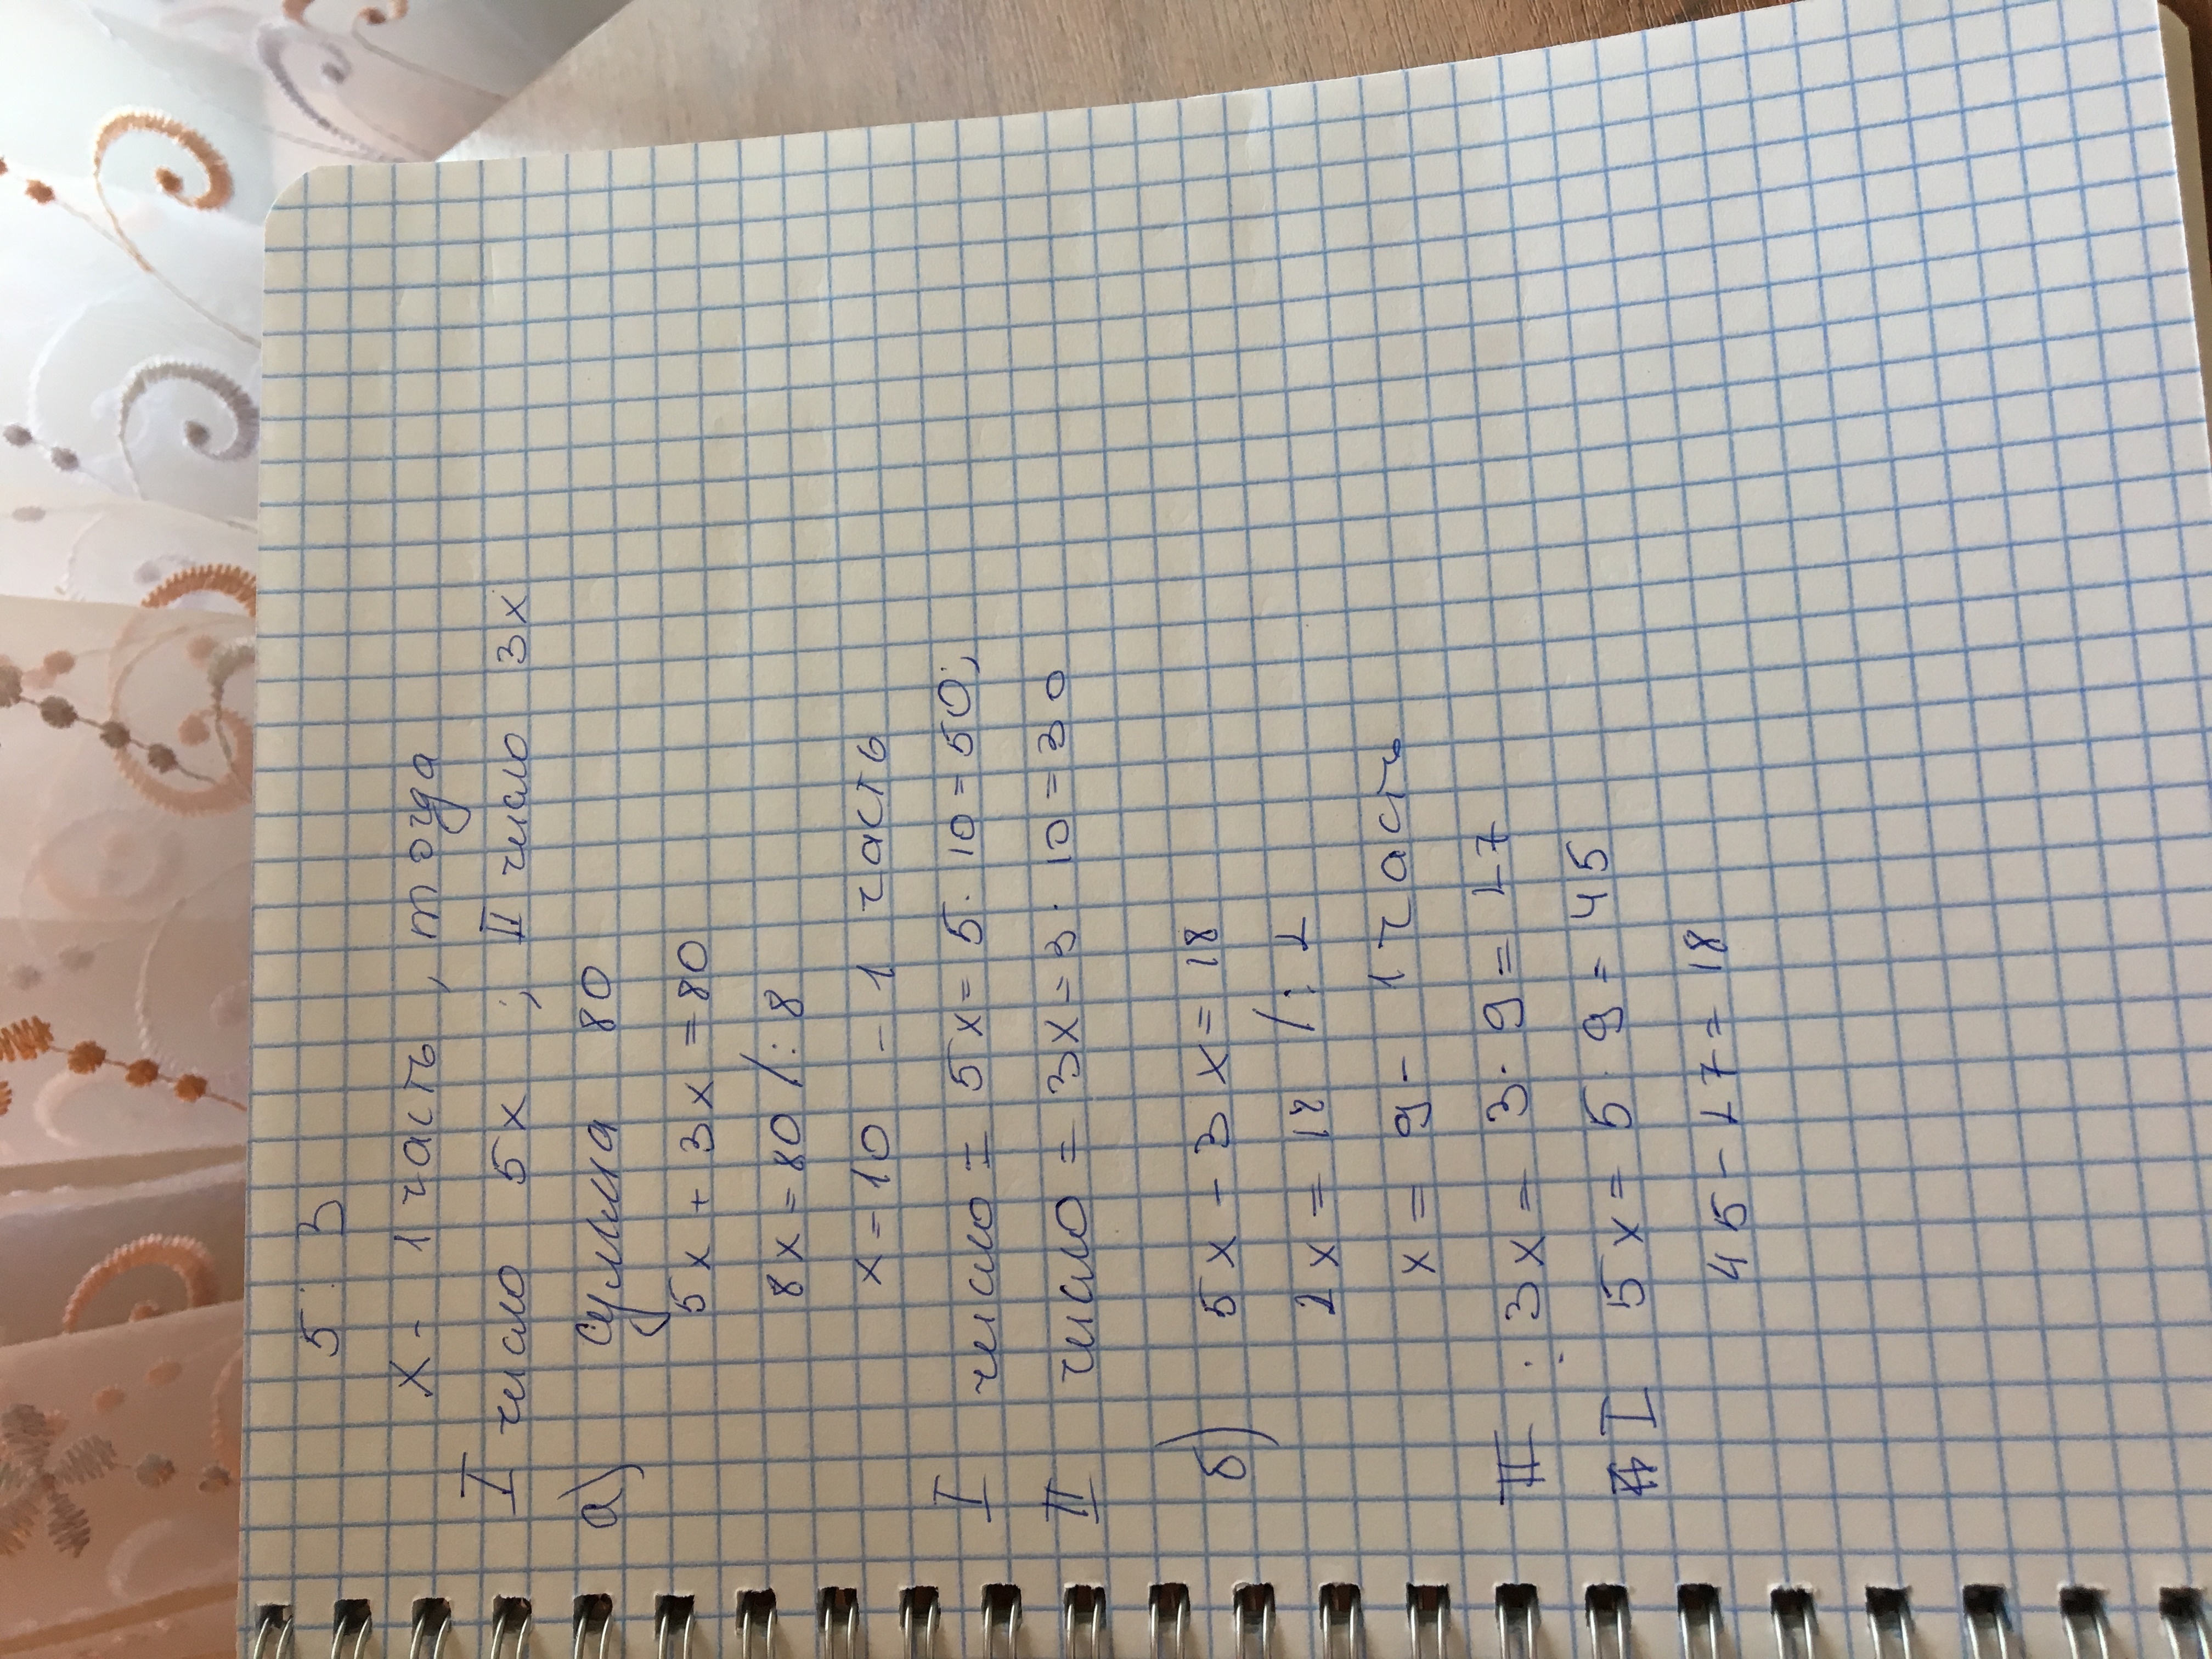 5 : 3
x - 1 часть, тогда
I число 5x ; II число 3x
а) Сумма 80
5x + 3x = 80
8x = 80 /: 8
x = 10 - 1 часть
I число = 5x = 5 · 10 = 50;
II число = 3x = 3 · 10 = 30
б) 5x - 3x = 18
2x = 18 /: 2
x = 9 - 1 часть
II : 3x = 3 · 9 = 27
I 5x = 5 · 9 = 45
45 - 27 = 18